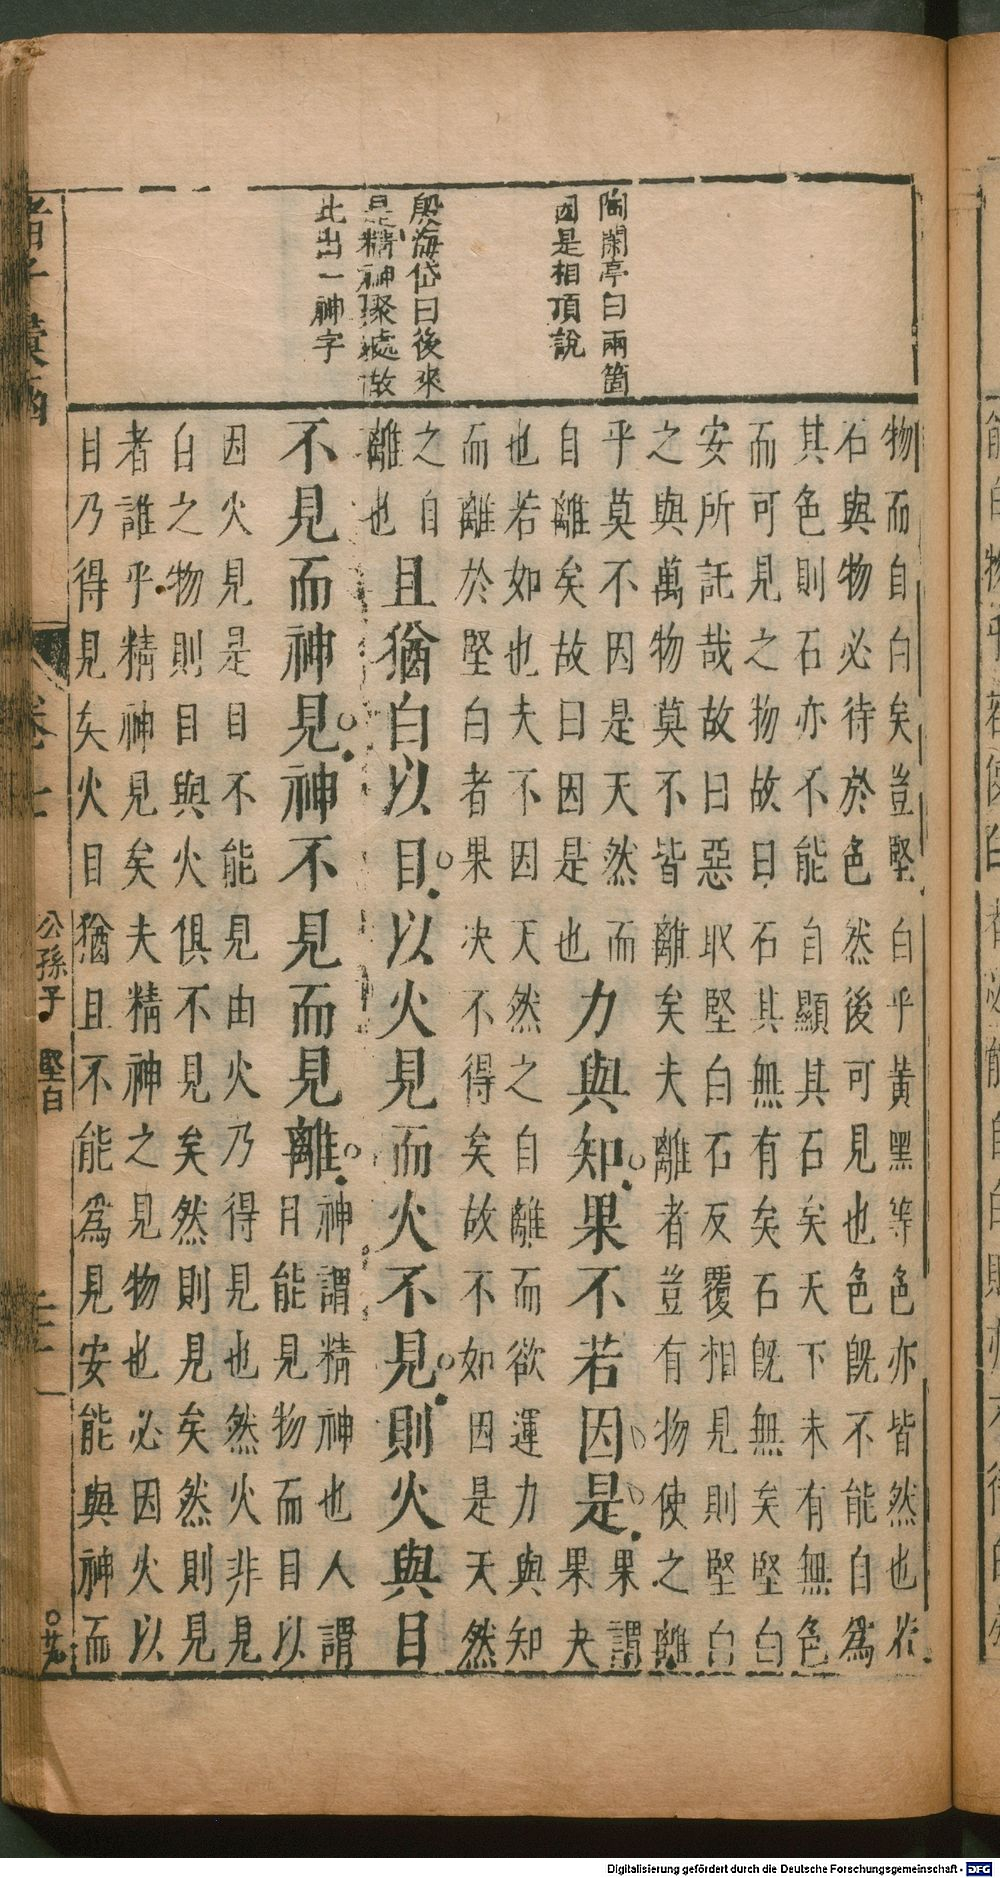 陶閑亭曰兩箇
因是相頂說
殷海岱曰後來
是精神聚處故
此出一神字
物而自白矣豈堅白乎黃黑等色亦皆然也若
石與物必待於色然後可見也色旣不能自爲
其色則石亦不能自顯其石矣天下未有無色
而可見之物故曰石其無有矣石旣無矣堅白
安所託哉故曰惡取堅白石反覆相見則堅白
之與萬物莫不皆離矣夫離者豈有物使之離
乎莫不因是天然而
自離矣故曰因是也
力與知果不若因是
果謂
果夬
也若如也夫不因天然之自離而欲運力與知
而離於堅白者果决不得矣故不如因是天然
之自
離也
且猶白以目以火見而火不見則火與目
不見而神見神不見而見離
神謂精神也人謂
目能見物而目以
因火見是目不能見由火乃得見也然火非見
白之物則目與火俱不見矣然則見矣然則見
者誰乎精神見矣夫精神之見物也必因火以
目乃得見矣火目猶且不能爲見安能與神而
諸子彙函
卷七
公孫子
堅白
Digitalisierung gefördert durch die Deutsche Forschungsgemeinschaft - DFG